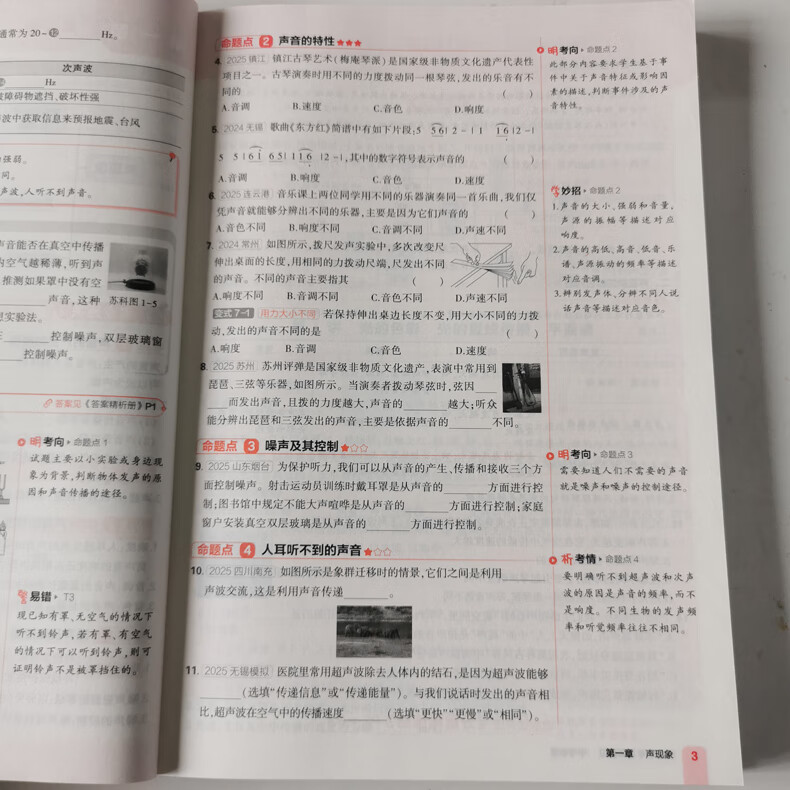 通常为 20-⑫______Hz。
次声波
______Hz
障碍物遮挡、破坏性强
波中获取信息来预报地震、台风
强弱。
同。
声波,人听不到声音。
声音能否在真空中传播
内空气越稀薄,听到声
推测如果罩中没有空
声音,这种
苏科图 1-5
想实验法。
______控制噪声,双层玻璃窗
______控制噪声。
答案见《答案精析册》P1
明考向·命题点 1
试题主要以小实验或身边现
象为背景,判断物体发声的原
因和声音传播的途径。
易错·T3
现已知有罩、无空气的情况下
听不到铃声,若有罩、有空气
的情况下可以听到铃声,则可
证明铃声不是被罩挡住的。
命题点 2 声音的特性★★★
4. 2025 镇江 镇江古琴艺术(梅庵琴派)是国家级非物质文化遗产代表性
项目之一。古琴演奏时用不同的力度拨动同一根琴弦,发出的乐音有不
同的 ( )
A.音调 B.速度 C.音色 D.响度
5. 2024 无锡 歌曲《东方红》简谱中有如下片段:5 56 | 2 - | 1 16 | 2 - |
5 5 | 61 65 | 1 16 | 2 - |,其中的数字符号表示声音的 ( )
A.音调 B.响度 C.音色 D.速度
6. 2025 连云港 音乐课上两位同学用不同的乐器演奏同一首乐曲,我们仅
凭声音就能够分辨出不同的乐器,主要是因为它们声音的 ( )
A.音色不同 B.响度不同 C.音调不同 D.声速不同
7. 2024 常州 如图所示,拨尺发声实验中,多次改变尺
伸出桌面的长度,用相同的力拨动尺端,尺发出不同
的声音。不同的声音主要指其 ( )
A.响度不同 B.音调不同 C.音色不同 D.声速不同
变式 7-1 用力大小不同 若保持伸出桌边长度不变,用大小不同的力拨
动,发出的声音不同的是 ( )
A.响度 B.音调 C.音色 D.速度
8. 2025 苏州 苏州评弹是国家级非物质文化遗产,表演中常用到
琵琶、三弦等乐器,如图所示。当演奏者拨动琴弦时,弦因____
____而发出声音,且拨的力度越大,声音的______越大;听众
能分辨出琵琶和三弦发出的声音,主要是依据声音的______不同。
命题点 3 噪声及其控制★☆☆
9. 2025 山东烟台 为保护听力,我们可以从声音的产生、传播和接收三个方
面控制噪声。射击运动员训练时戴耳罩是从声音的______方面进行控
制;图书馆中规定不能大声喧哗是从声音的______方面进行控制;家庭
窗户安装真空双层玻璃是从声音的______方面进行控制。
命题点 4 人耳听不到的声音★☆☆
10. 2025 四川南充 如图所示是象群迁移时的情景,它们之间是利用______
声波交流,这是利用声音传递______。
11. 2025 无锡模拟 医院里常用超声波除去人体内的结石,是因为超声波能够
______(选填“传递信息”或“传递能量”)。与我们说话时发出的声音相
比,超声波在空气中的传播速度______(选填“更快”“更慢”或“相同”)。
明考向·命题点 2
此部分内容要求学生基于事
件中关于声音特征或影响因
素的描述,判断事件涉及的声
音特性。
妙招·命题点 2
1.声音的大小、强弱和音量,
声源的振幅等描述对应
响度。
2.声音的高低、高音、低音、乐
谱、声源振动的频率等描述
对应音调。
3.辨别发声体、分辨不同人说
话声音等描述对应音色。
明考向·命题点 3
需要知道人们不需要的声音
就是噪声和噪声的控制途径。
析考情·命题点 4
要明确听不到超声波和次声
波的原因是声音的频率,而不
是响度。不同生物的发声频
率和听觉频率往往不相同。
第一章 声现象 3